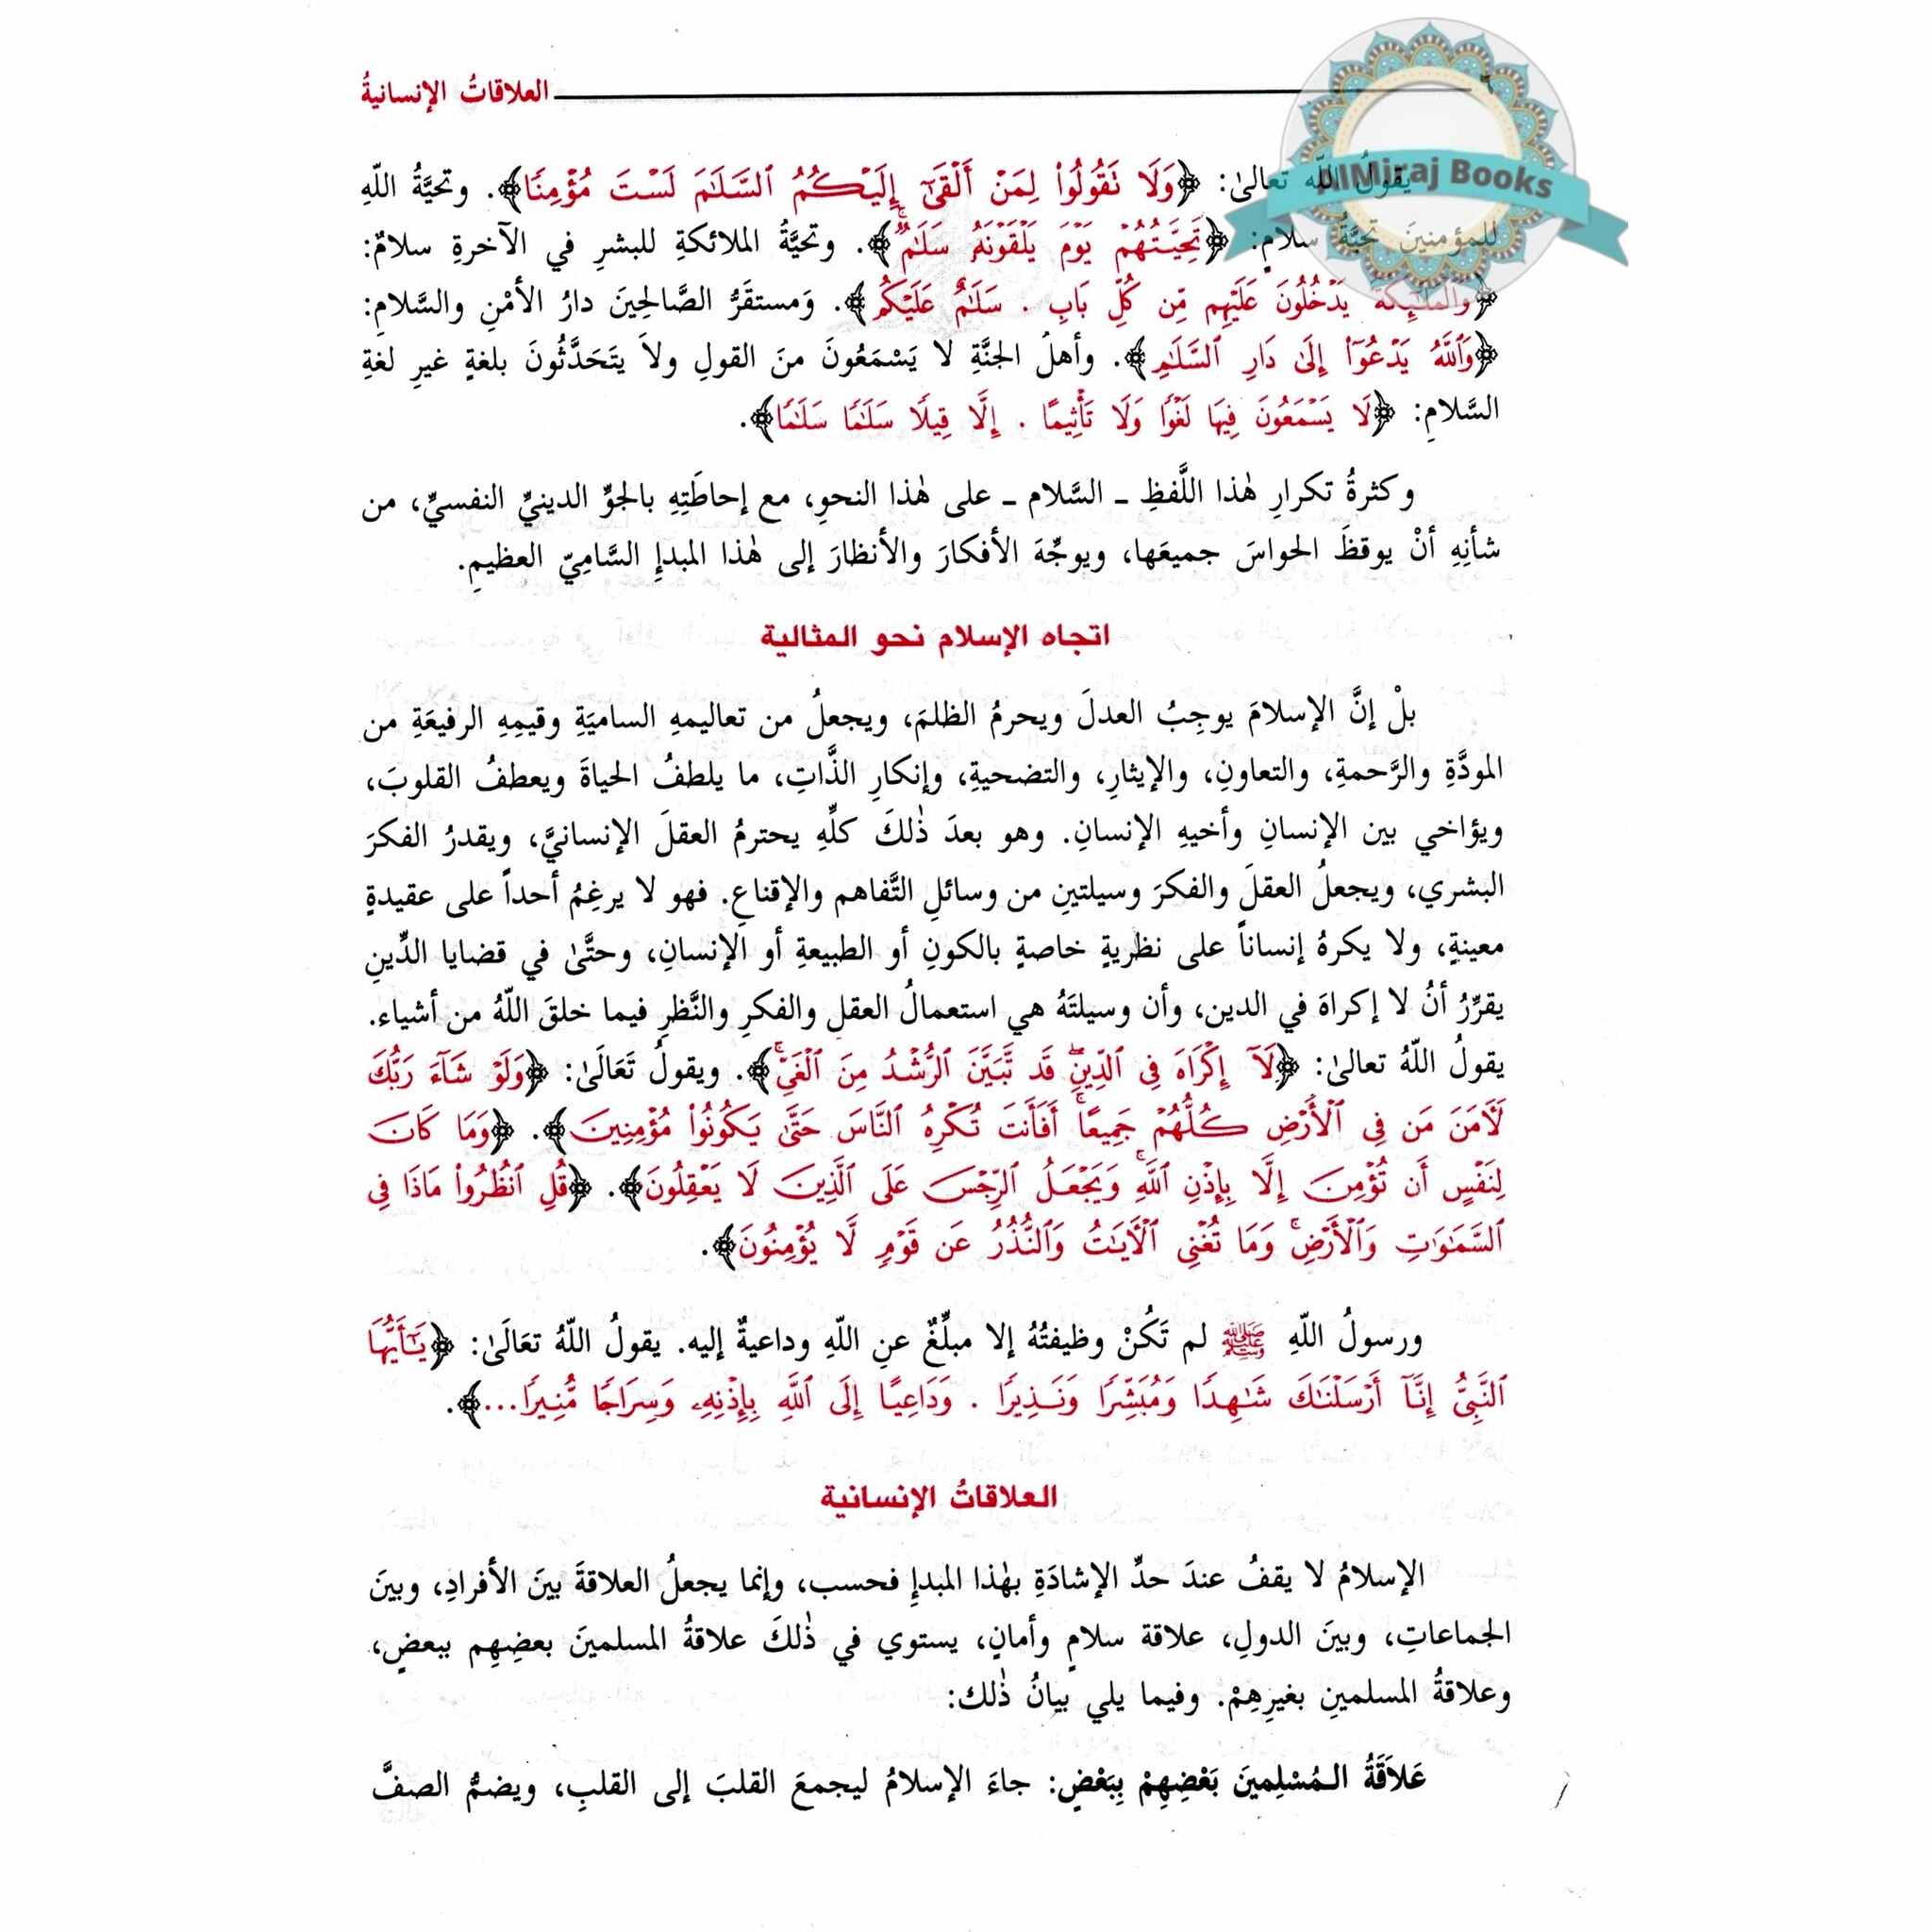 العلاقاتُ الإنسانيةُ
AlMiraj Books
يقولُ اللّه تعالىٰ: ﴿وَلَا تَقُولُوا۟ لِمَنْ أَلْقَىٰٓ إِلَيْكُمُ ٱلسَّلَٰمَ لَسْتَ مُؤْمِنًا﴾. وتحيَّةُ اللّهِ
للمؤمنينَ تحيَّةُ سلامٍ: ﴿تَحِيَّتُهُمْ يَوْمَ يَلْقَوْنَهُۥ سَلَٰمٌۚ﴾. وتحيَّةُ الملائكةِ للبشرِ في الآخرةِ سلامٌ:
﴿وَٱلْمَلَٰٓئِكَةُ يَدْخُلُونَ عَلَيْهِم مِّن كُلِّ بَابٍ . سَلَٰمٌ عَلَيْكُم﴾. وَمستقَرُّ الصَّالحِينَ دارُ الأمْنِ والسَّلامِ:
﴿وَٱللَّهُ يَدْعُوٓا۟ إِلَىٰ دَارِ ٱلسَّلَٰمِ﴾. وأهلُ الجنَّةِ لا يَسْمَعُونَ منَ القولِ ولاَ يتَحَدَّثُونَ بلغةٍ غيرِ لغةِ
السَّلامِ: ﴿لَا يَسْمَعُونَ فِيهَا لَغْوًا وَلَا تَأْثِيمًا . إِلَّا قِيلًا سَلَٰمًا سَلَٰمًا﴾.
وكثرةُ تكرارِ هٰذا اللَّفظِ ـ السَّلام ـ على هٰذا النحوِ، مع إحاطَتِهِ بالجوِّ الدينيِّ النفسيِّ، من
شأنِهِ أنْ يوقظَ الحواسَ جميعَها، ويوجِّهَ الأفكارَ والأنظارَ إلى هٰذا المبدإِ السَّامِيّ العظيمِ.
اتجاه الإسلام نحو المثالية
بلْ إنَّ الإسلامَ يوجِبُ العدلَ ويحرمُ الظلمَ، ويجعلُ من تعاليمهِ الساميَةِ وقيمِهِ الرفيعَةِ من
المودَّةِ والرَّحمةِ، والتعاونِ، والإيثارِ، والتضحيةِ، وإنكارِ الذَّاتِ، ما يلطفُ الحياةَ ويعطفُ القلوبَ،
ويؤاخي بين الإنسانِ وأخيهِ الإنسانِ. وهو بعدَ ذٰلكَ كلِّهِ يحترمُ العقلَ الإنسانيَّ، ويقدرُ الفكرَ
البشري، ويجعلُ العقلَ والفكرَ وسيلتينِ من وسائلِ التَّفاهم والإقناعِ. فهو لا يرغِمُ أحداً على عقيدةٍ
معينةٍ، ولا يكرهُ إنساناً على نظريةٍ خاصةٍ بالكونِ أو الطبيعةِ أو الإنسانِ، وحتَّىٰ في قضايا الدِّينِ
يقرِّرُ أنْ لا إكراهَ في الدين، وأن وسيلتَهُ هي استعمالُ العقلِ والفكرِ والنَّظرِ فيما خلقَ اللّهُ من أشياء.
يقولُ اللّهُ تعالىٰ: ﴿لَآ إِكْرَاهَ فِى ٱلدِّينِۖ قَد تَّبَيَّنَ ٱلرُّشْدُ مِنَ ٱلْغَيِّۚ﴾. ويقولُ تَعَالَىٰ: ﴿وَلَوْ شَآءَ رَبُّكَ
لَـَٔامَنَ مَن فِى ٱلْأَرْضِ كُلُّهُمْ جَمِيعًاۚ أَفَأَنتَ تُكْرِهُ ٱلنَّاسَ حَتَّىٰ يَكُونُوا۟ مُؤْمِنِينَ﴾. ﴿وَمَا كَانَ
لِنَفْسٍ أَن تُؤْمِنَ إِلَّا بِإِذْنِ ٱللَّهِۚ وَيَجْعَلُ ٱلرِّجْسَ عَلَى ٱلَّذِينَ لَا يَعْقِلُونَ﴾. ﴿قُلِ ٱنظُرُوا۟ مَاذَا فِى
ٱلسَّمَٰوَٰتِ وَٱلْأَرْضِۚ وَمَا تُغْنِى ٱلْـَٔايَٰتُ وَٱلنُّذُرُ عَن قَوْمٍ لَّا يُؤْمِنُونَ﴾.
ورسولُ اللّهِ ﷺ لم تَكُنْ وظيفتُهُ إلا مبلِّغٌ عنِ اللّهِ وداعيةٌ إليه. يقولُ اللّهُ تعَالَىٰ: ﴿يَٰٓأَيُّهَا
ٱلنَّبِىُّ إِنَّآ أَرْسَلْنَٰكَ شَٰهِدًا وَمُبَشِّرًا وَنَذِيرًا . وَدَاعِيًا إِلَى ٱللَّهِ بِإِذْنِهِۦ وَسِرَاجًا مُّنِيرًا...﴾.
العلاقاتُ الإنسانية
الإسلامُ لا يقفُ عندَ حدِّ الإشادَةِ بهٰذا المبدإِ فحسب، وإنما يجعلُ العلاقةَ بينَ الأفرادِ، وبينَ
الجماعاتِ، وبينَ الدولِ، علاقة سلامٍ وأمانٍ، يستوي في ذٰلكَ علاقةُ المسلمينَ بعضِهِم ببعضٍ،
وعلاقةُ المسلمينِ بغيرِهِمْ. وفيما يلي بيانُ ذٰلك:
عَلاَقَةُ الـمُسْلِمينَ بَعْضِهِمْ بِبَعْضٍ: جاءَ الإسلامُ ليجمعَ القلبَ إلى القلبِ، ويضمُّ الصفَّ